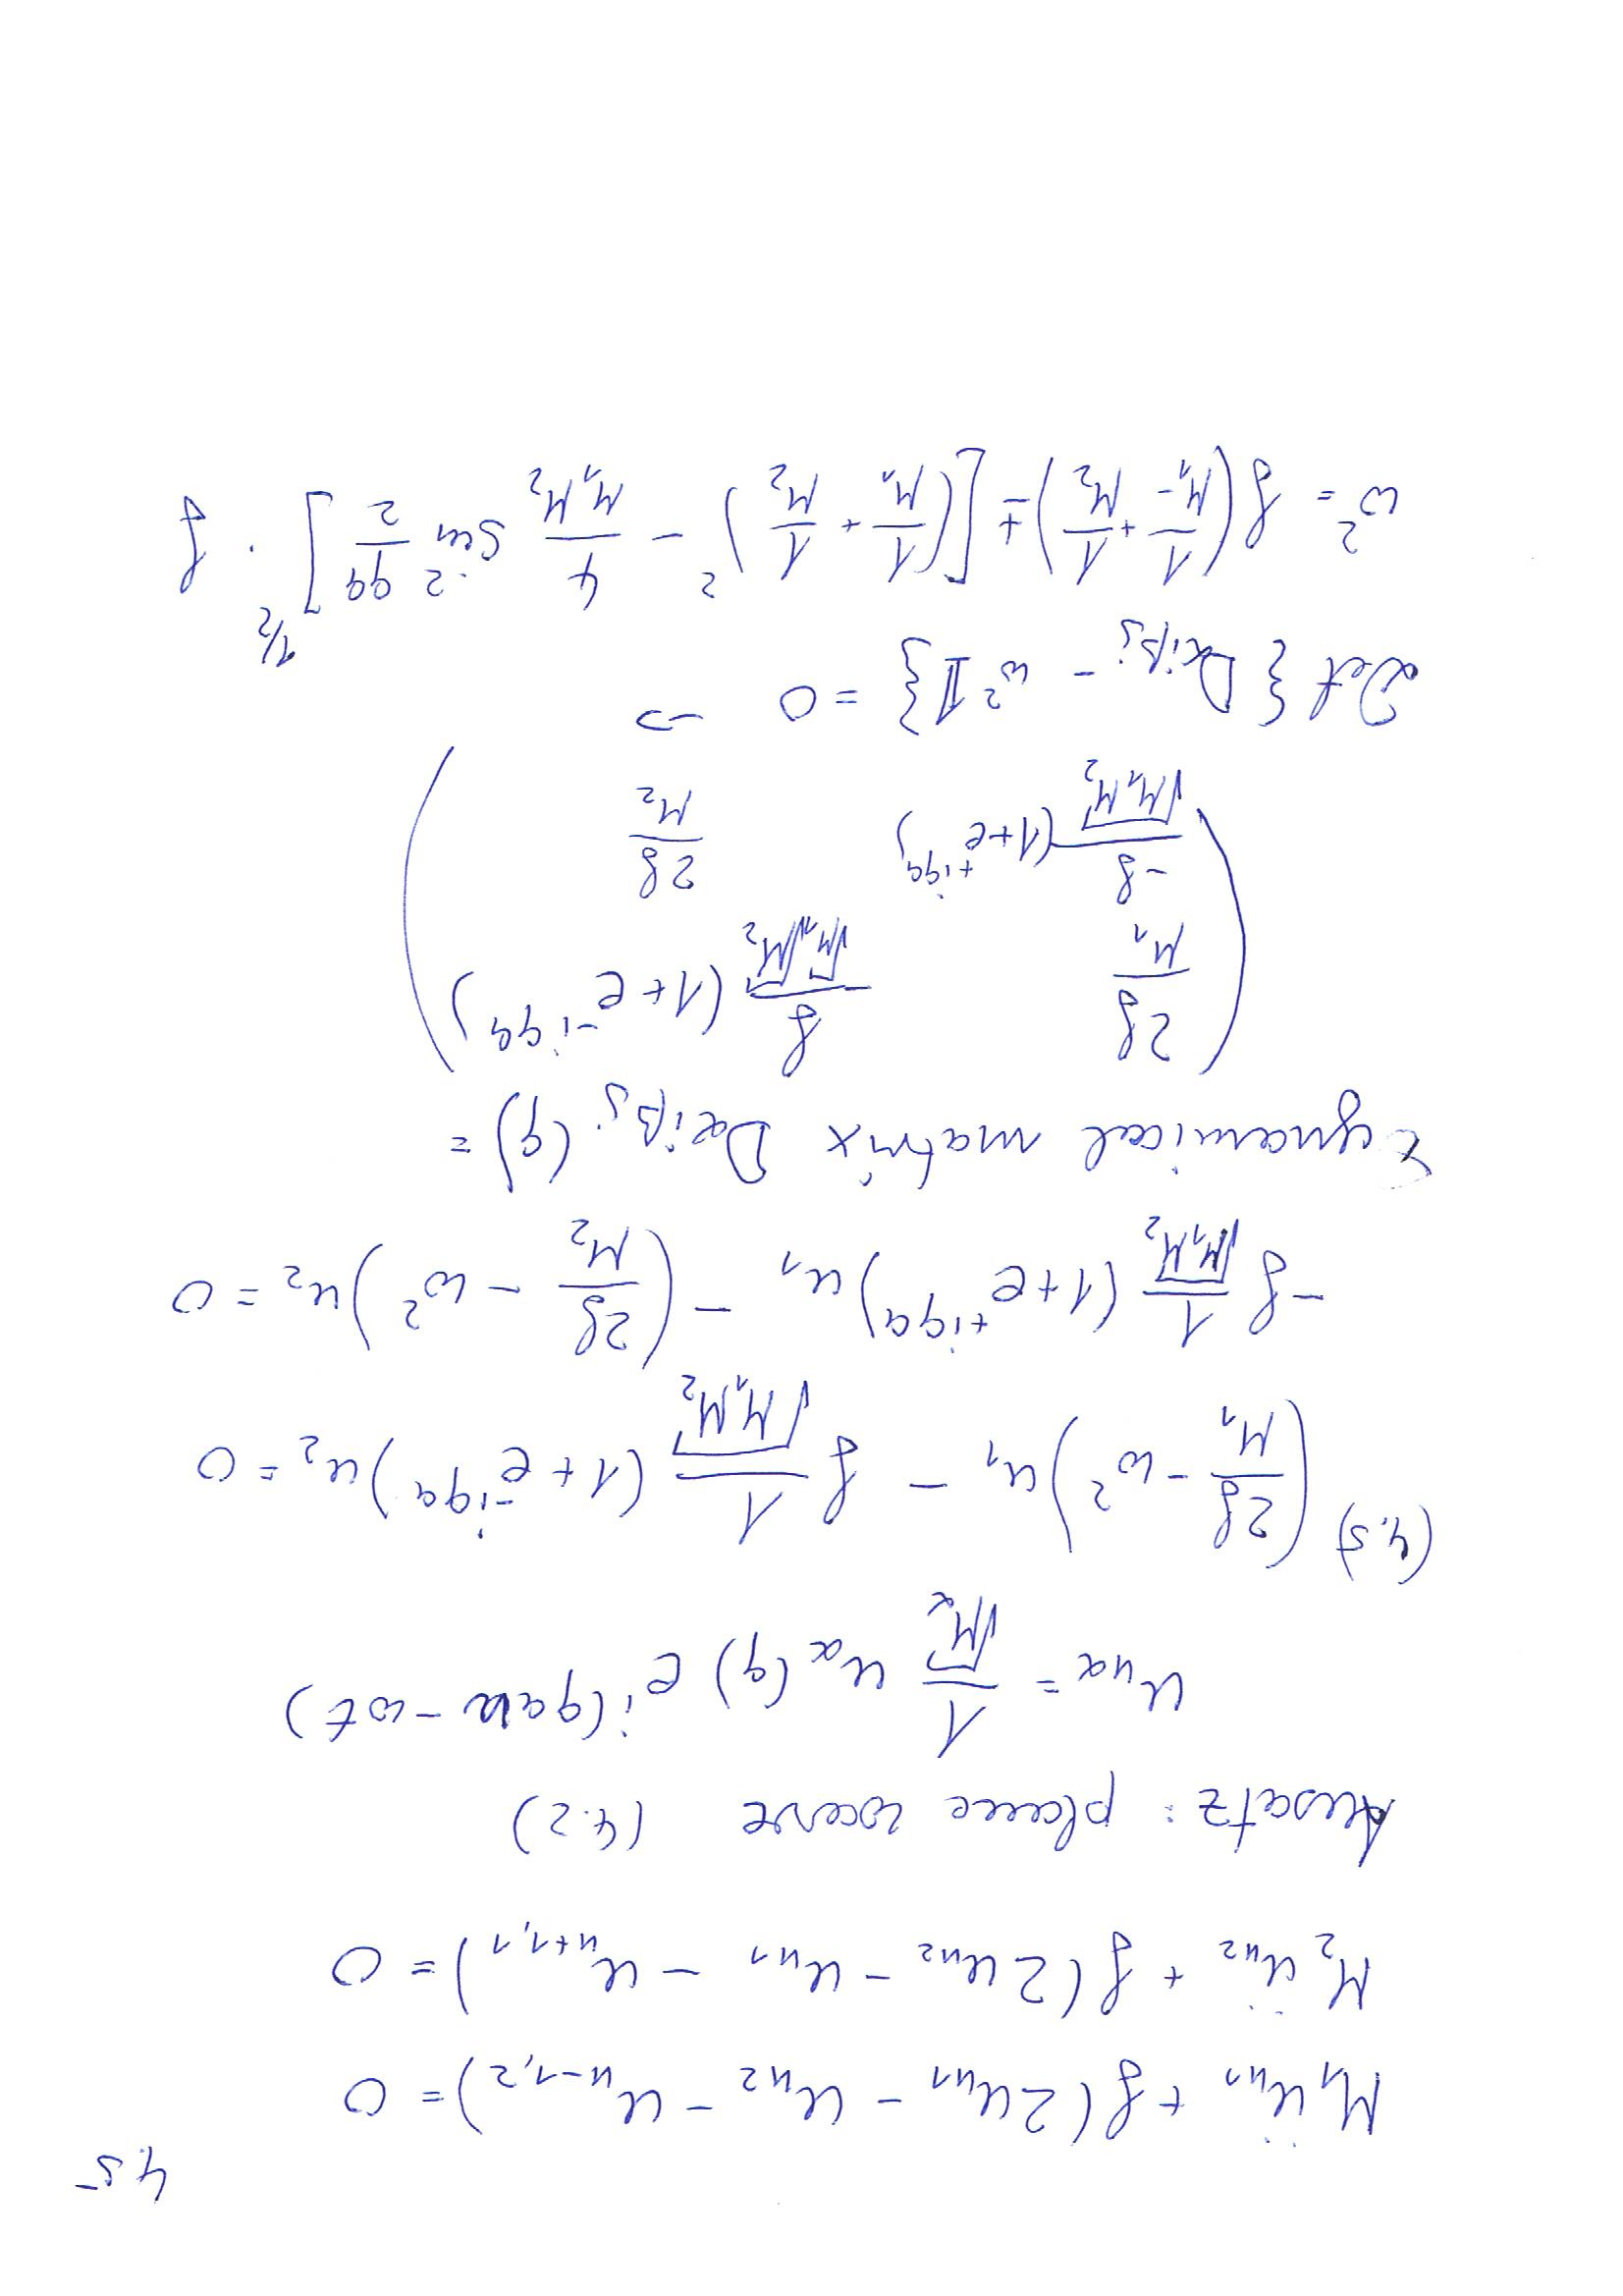 4.5
M₁ü_{n1} + f(2u_{n1} - u_{n2} - u_{n-1,2}) = 0
M₂ü_{n2} + f(2u_{n2} - u_{n1} - u_{n+1,1}) = 0
Ansatz: plane wave (4.2)
u_{nα} = 1/√M_α u_α(q) e^{i(qan - ωt)}
(4.5) (2f/M₁ - ω²)u₁ - f 1/√(M₁M₂) (1 + e^{-iqa})u₂ = 0
-f 1/√(M₁M₂) (1 + e^{+iqa})u₁ - (2f/M₂ - ω²)u₂ = 0
Dynamical matrix D_{αiβj}(q) =
( 2f/M₁ -f/√(M₁M₂) (1 + e^{-iqa})
-f/√(M₁M₂) (1 + e^{+iqa}) 2f/M₂ )
Det {D_{αiβj} - ω² 1} = 0 →
ω² = f(1/M₁ + 1/M₂) ± [(1/M₁ + 1/M₂)² - 4/(M₁M₂) sin² qa/2]^{1/2} · f